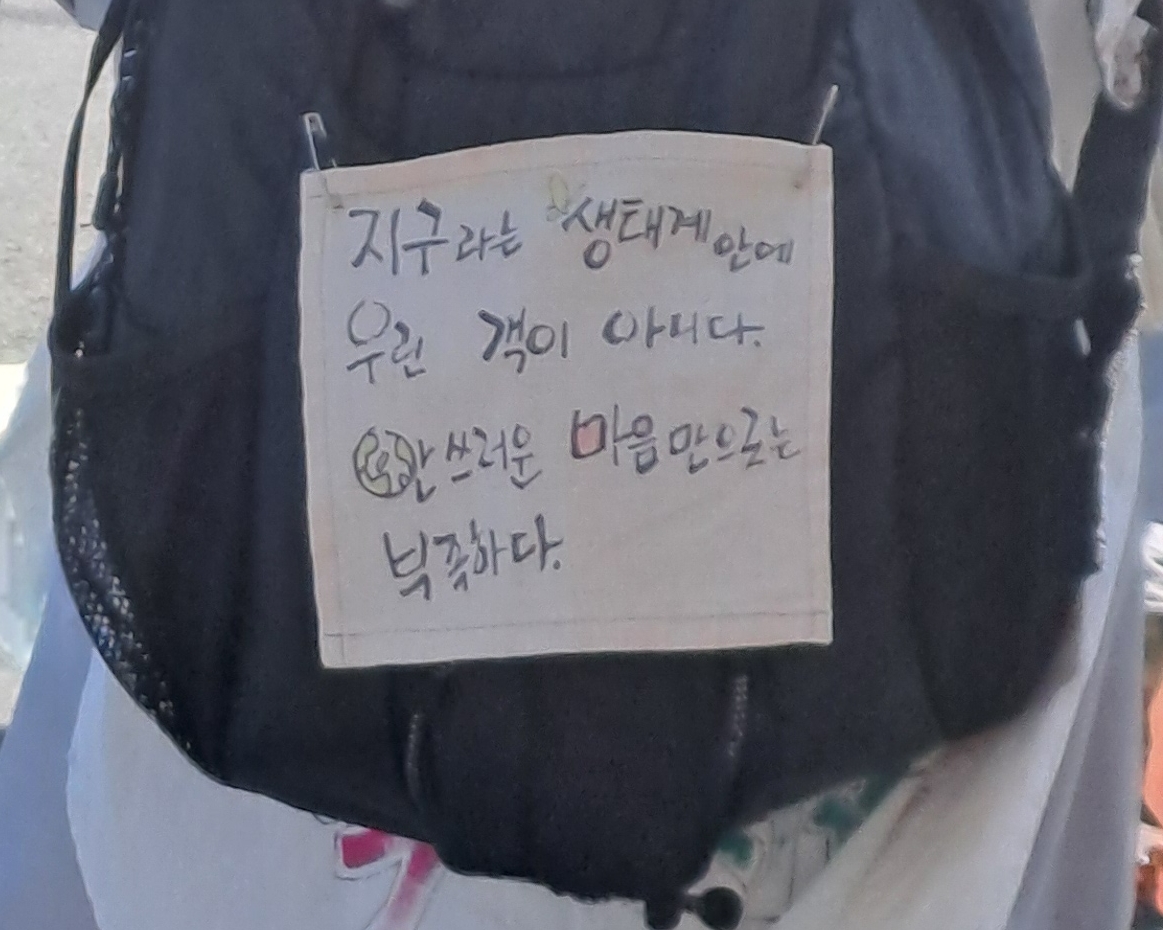 지구라는 생태계 안에
우린 객이 아니다.
안쓰러운 마음만으로는
부족하다.